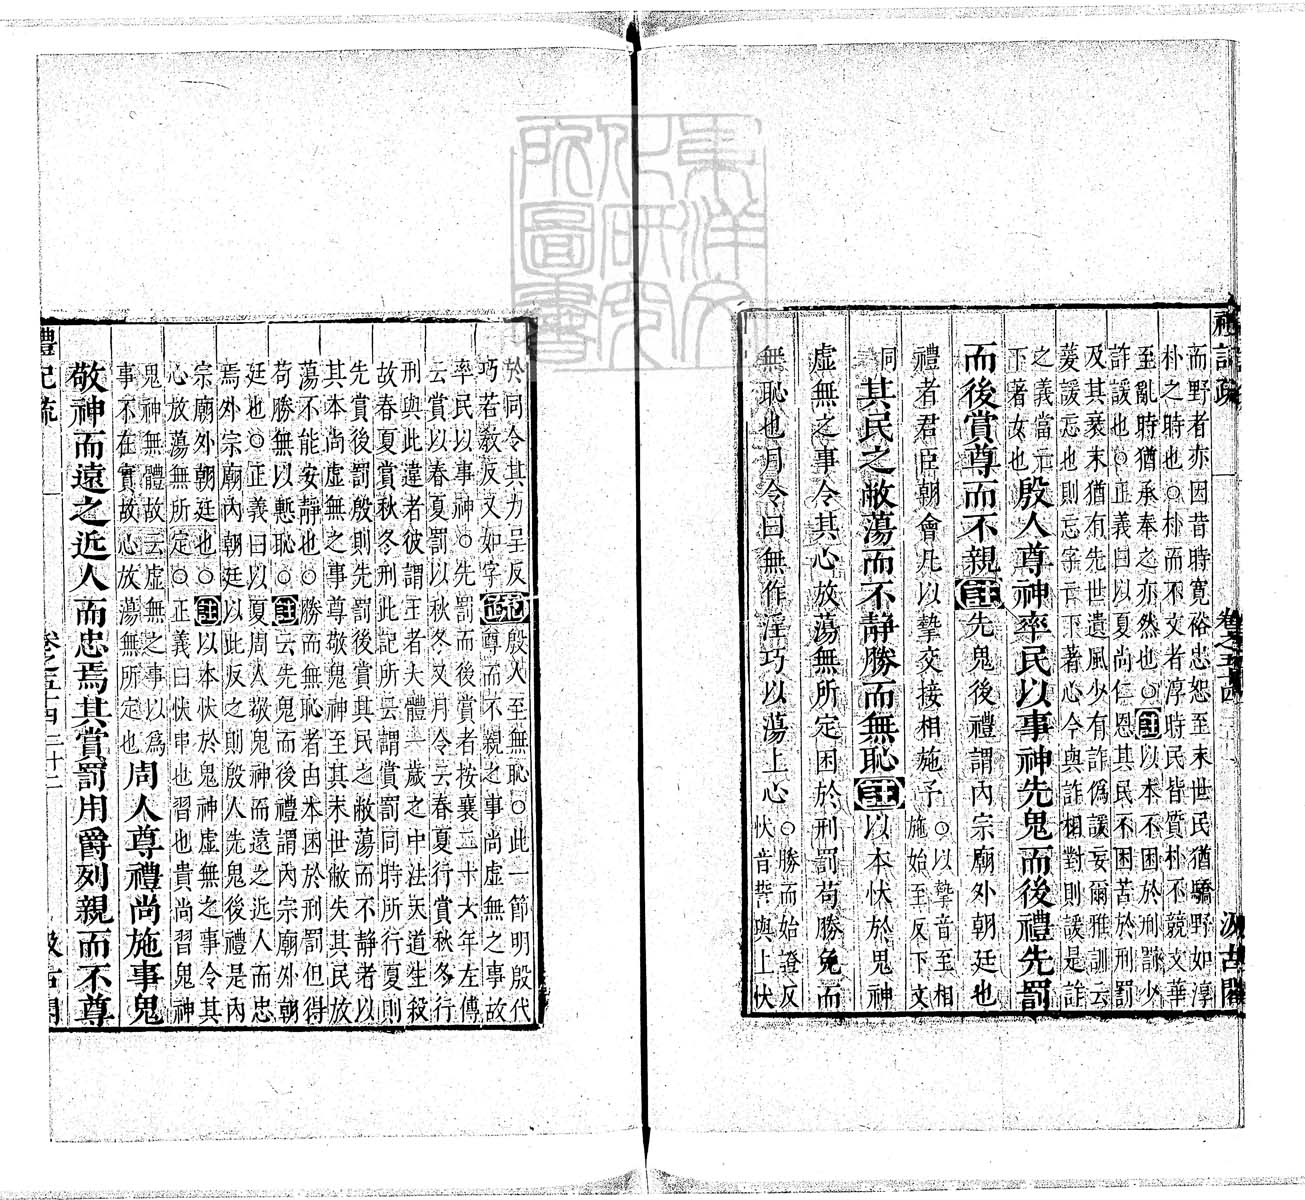 禮記疏 卷之五十四 汲古閣
而野者亦因昔時寬裕忠恕至末世民猶驕野如淳
朴之時也○朴而不文者淳時民皆質朴不競文華
至亂時猶承奉之亦然也○註以本不困於刑罰少
詐諼也○正義曰以夏尚仁恩其民不困苦於刑罰
及其衰末猶有先世遺風少有詐僞諼妄爾雅訓云
萲諼忘也則忘字云下著心今與詐相對則諼是詐
之義當言
下著女也
殷人尊神率民以事神先鬼而後禮先罰
而後賞尊而不親註先鬼後禮謂內宗廟外朝廷也
禮者君臣朝會凡以摯交接相施予○以摯音至相
施始至反下文
同其民之敝蕩而不靜勝而無恥註以本伏於鬼神
虛無之事令其心放蕩無所定困於刑罰苟勝免而
無恥也月令曰無作淫巧以蕩上心○勝而始證反
伏音誓與上伏
於同令其力呈反
巧若敎反又如字
疏殷人至無恥○此一節明殷代
尊而不親之事尚虛無之事故
率民以事神○先罰而後賞者按襄二十六年左傳
云賞以春夏罰以秋冬又月令云春夏行賞秋冬行
刑與此違者彼謂王者大體一歲之中法天道生殺
故春夏賞秋冬刑此記所云謂賞罰同時所行夏則
先賞後罰殷則先罰後賞其民之敝蕩而不靜者以
其本尚虛無之事尊敬鬼神至其末世敝失其民放
蕩不能安靜也○勝而無恥者由本困於刑罰但得
苟勝無以慙恥○註云先鬼而後禮謂內宗廟外朝
廷也○正義曰以夏周人敬鬼神而遠之近人而忠
焉外宗廟內朝廷以此反之則殷人先鬼後禮是內
宗廟外朝廷也○註以本伏於鬼神虛無之事令其
心放蕩無所定○正義曰伏串也習也貴尚習鬼神
鬼神無體故云虛無之事以爲
事不在實故心放蕩無所定也
周人尊禮尚施事鬼
敬神而遠之近人而忠焉其賞罰用爵列親而不尊
禮記疏 卷之五十四 二十二 汲古閣
東洋文化研究所圖書